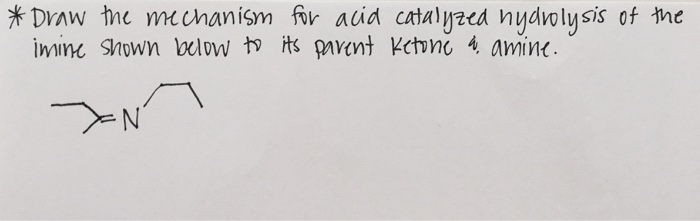 * Draw the mechanism for acid catalyzed hydrolysis of the
imine shown below to its parent ketone & amine.
N